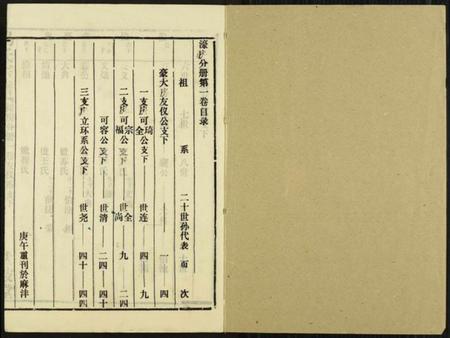 濠房分册第一卷目录
祖 系 二十世孙代表 页 次
豪大房友仪公支下 一 四
一支房可琦全公支下 世连 四 九
二支房可宗福公支下 世全尚 九 二四
可容公支下 世清 二四 四十
三支房立环系公支下 世尧 四十 四四
庚午重刊於麻沣